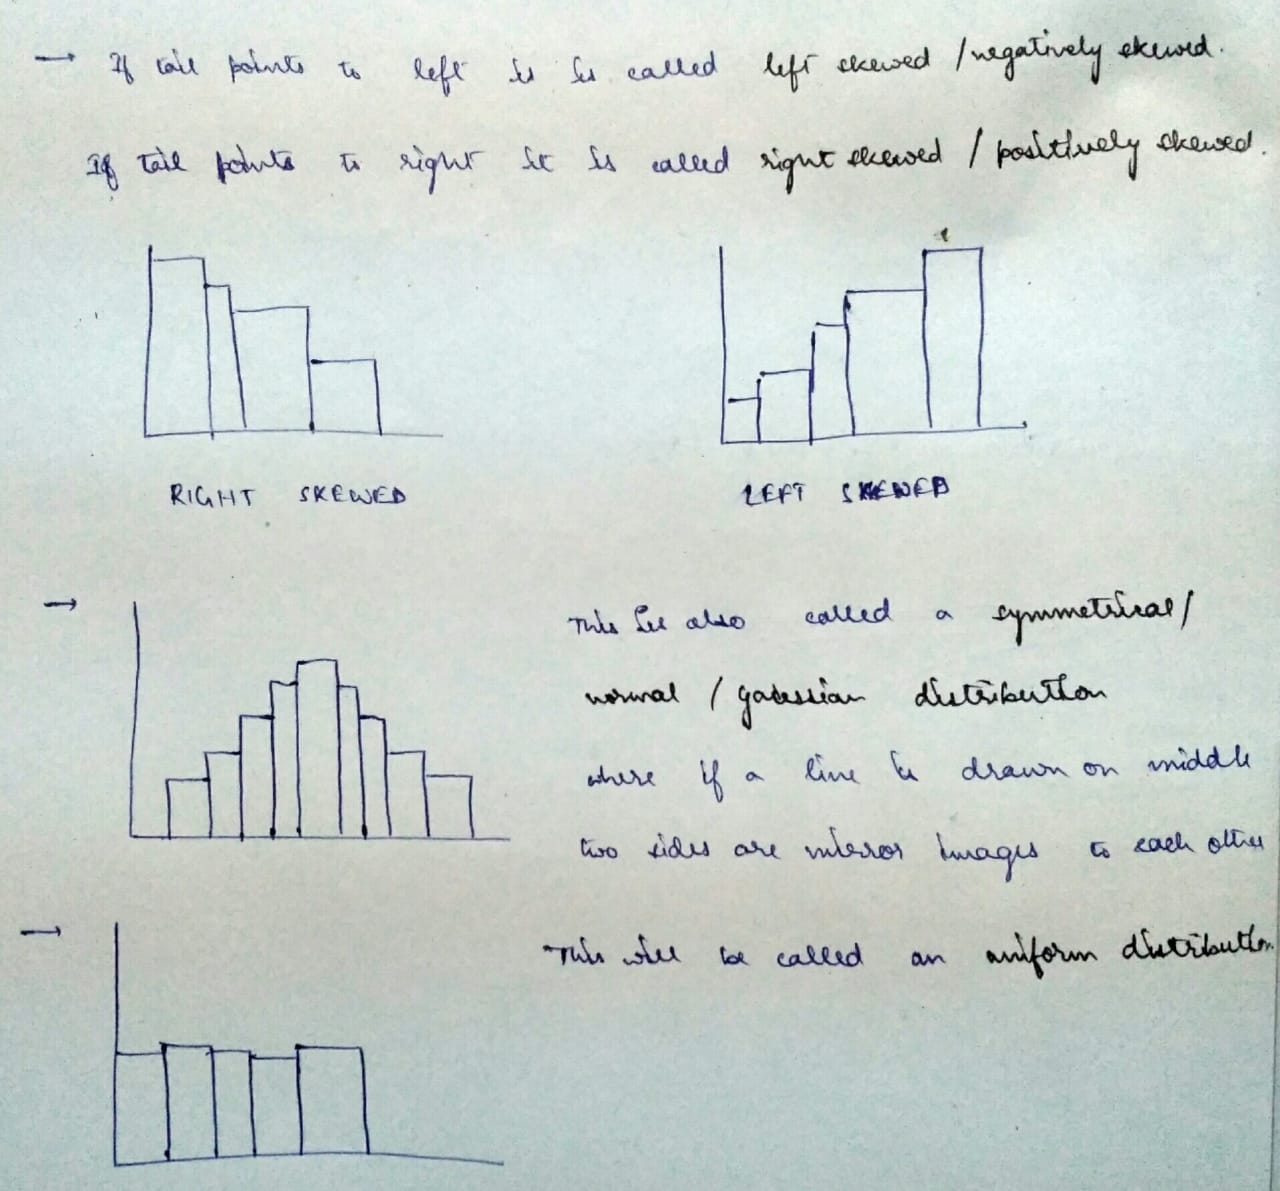 → If tail points to left it is called left skewed / negatively skewed.
If tail points to right it is called right skewed / positively skewed.
RIGHT SKEWED
LEFT SKEWED
→ This is also called a symmetrical /
normal / gaussian distribution
where if a line is drawn on middle
two sides are mirror images to each other
→ This will be called an uniform distribution.